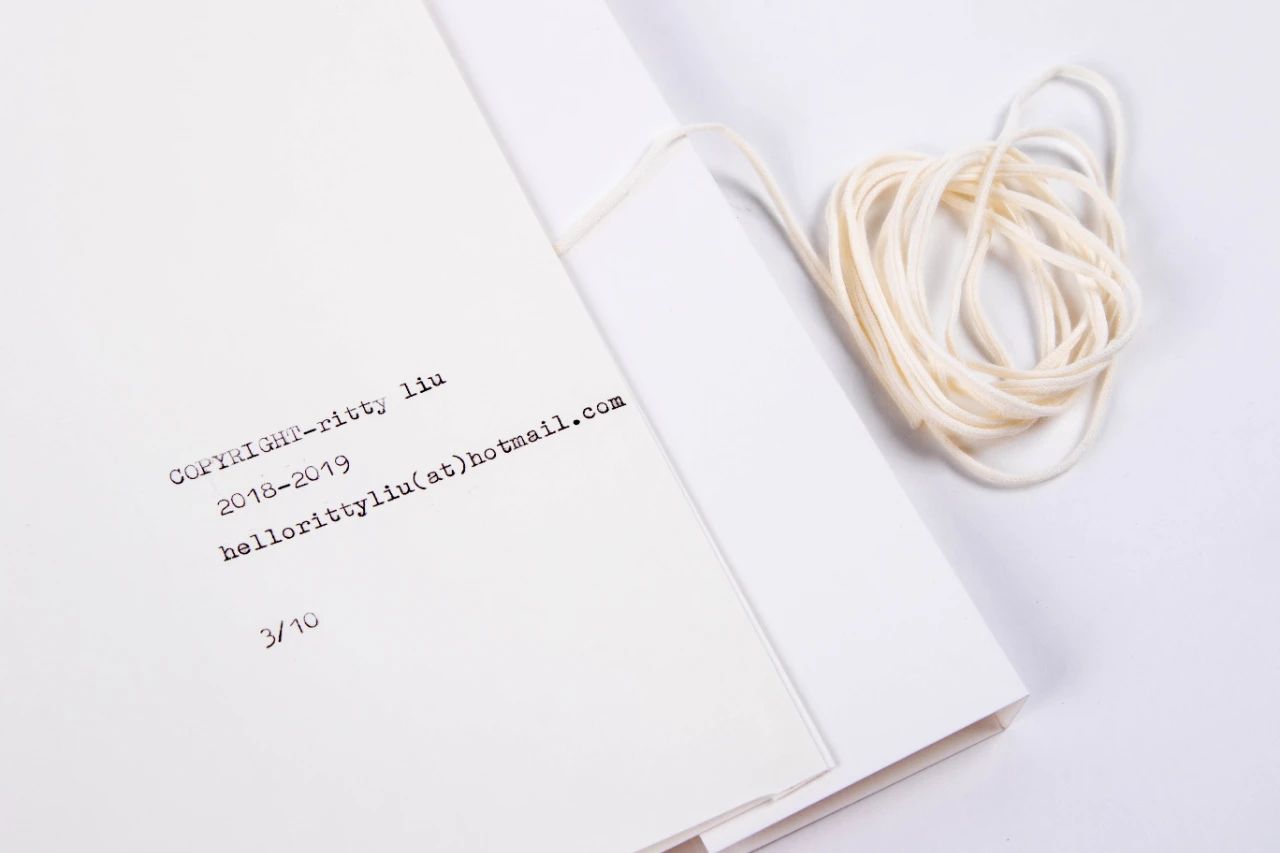 COPYRIGHT-ritty liu
2018-2019
hellorittyliu(at)hotmail.com
3/10